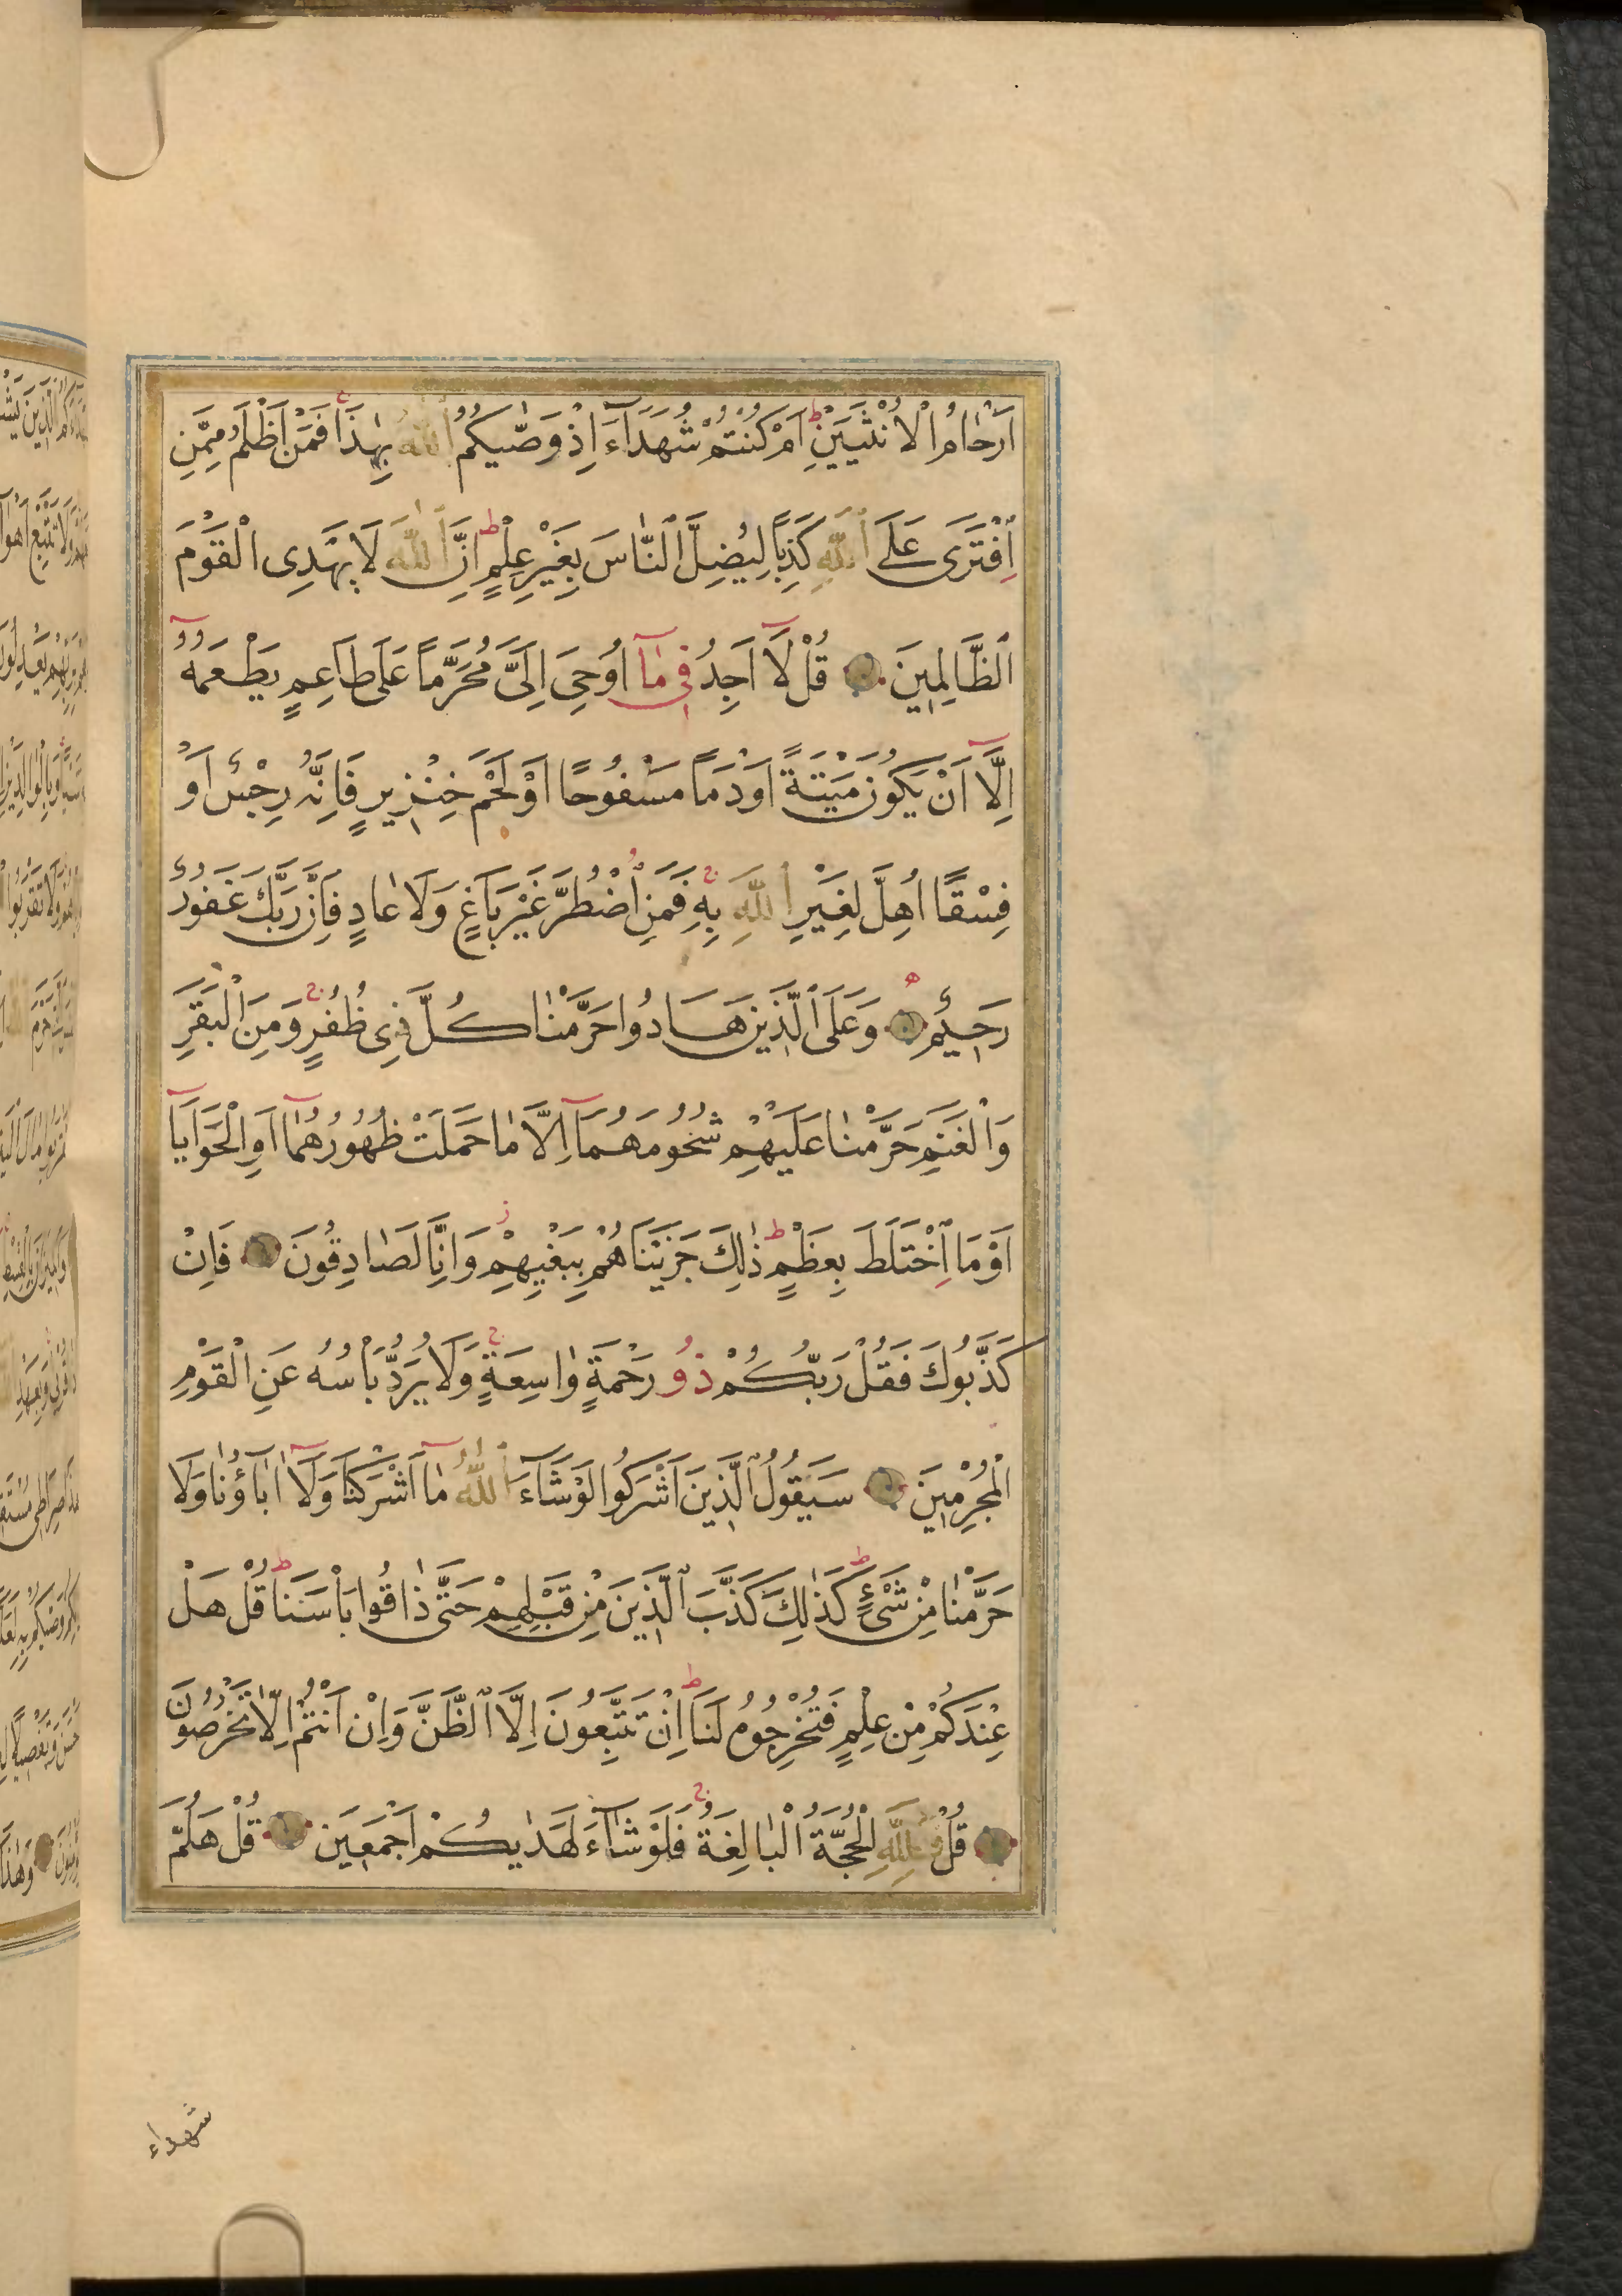 اَرْحَامُ الْاُنْثَيَيْنِ ط اَمْ كُنْتُمْ شُهَدَآءَ اِذْ وَصّٰيكُمُ اللّٰهُ بِهٰذَا ج فَمَنْ اَظْلَمُ مِمَّنِ
افْتَرٰى عَلَى اللّٰهِ كَذِبًا لِيُضِلَّ النَّاسَ بِغَيْرِ عِلْمٍ ط اِنَّ اللّٰهَ لَا يَهْدِى الْقَوْمَ
الظَّالِمِينَ قُلْ لَآ اَجِدُ فِى مَآ اُوحِىَ اِلَىَّ مُحَرَّمًا عَلَى طَاعِمٍ يَطْعَمُهُٓ
اِلَّآ اَنْ يَكُونَ مَيْتَةً اَوْ دَمًا مَسْفُوحًا اَوْ لَحْمَ خِنْزِيرٍ فَاِنَّهُ رِجْسٌ اَوْ
فِسْقًا اُهِلَّ لِغَيْرِ اللّٰهِ بِهِ ج فَمَنِ اضْطُرَّ غَيْرَ بَاغٍ وَلَا عَادٍ فَاِنَّ رَبَّكَ غَفُورٌ
رَحِيمٌ وَعَلَى الَّذِينَ هَادُوا حَرَّمْنَا كُلَّ ذِى ظُفُرٍ ج وَمِنَ الْبَقَرِ
وَالْغَنَمِ حَرَّمْنَا عَلَيْهِمْ شُحُومَهُمَآ اِلَّا مَا حَمَلَتْ ظُهُورُهُمَآ اَوِ الْحَوَايَآ
اَوْ مَا اخْتَلَطَ بِعَظْمٍ ط ذٰلِكَ جَزَيْنَاهُمْ بِبَغْيِهِمْ ز وَاِنَّا لَصَادِقُونَ فَاِنْ
كَذَّبُوكَ فَقُلْ رَبُّكُمْ ذُو رَحْمَةٍ وَاسِعَةٍ ج وَلَا يُرَدُّ بَأْسُهُ عَنِ الْقَوْمِ
الْمُجْرِمِينَ سَيَقُولُ الَّذِينَ اَشْرَكُوا لَوْ شَآءَ اللّٰهُ مَآ اَشْرَكْنَا وَلَآ اٰبَآؤُنَا وَلَا
حَرَّمْنَا مِنْ شَىْءٍ ط كَذٰلِكَ كَذَّبَ الَّذِينَ مِنْ قَبْلِهِمْ حَتّٰى ذَاقُوا بَأْسَنَا ط قُلْ هَلْ
عِنْدَكُمْ مِنْ عِلْمٍ فَتُخْرِجُوهُ لَنَا ط اِنْ تَتَّبِعُونَ اِلَّا الظَّنَّ وَاِنْ اَنْتُمْ اِلَّا تَخْرُصُونَ
قُلْ فَلِلّٰهِ الْحُجَّةُ الْبَالِغَةُ ج فَلَوْ شَآءَ لَهَدٰيكُمْ اَجْمَعِينَ قُلْ هَلُمَّ
شهداء